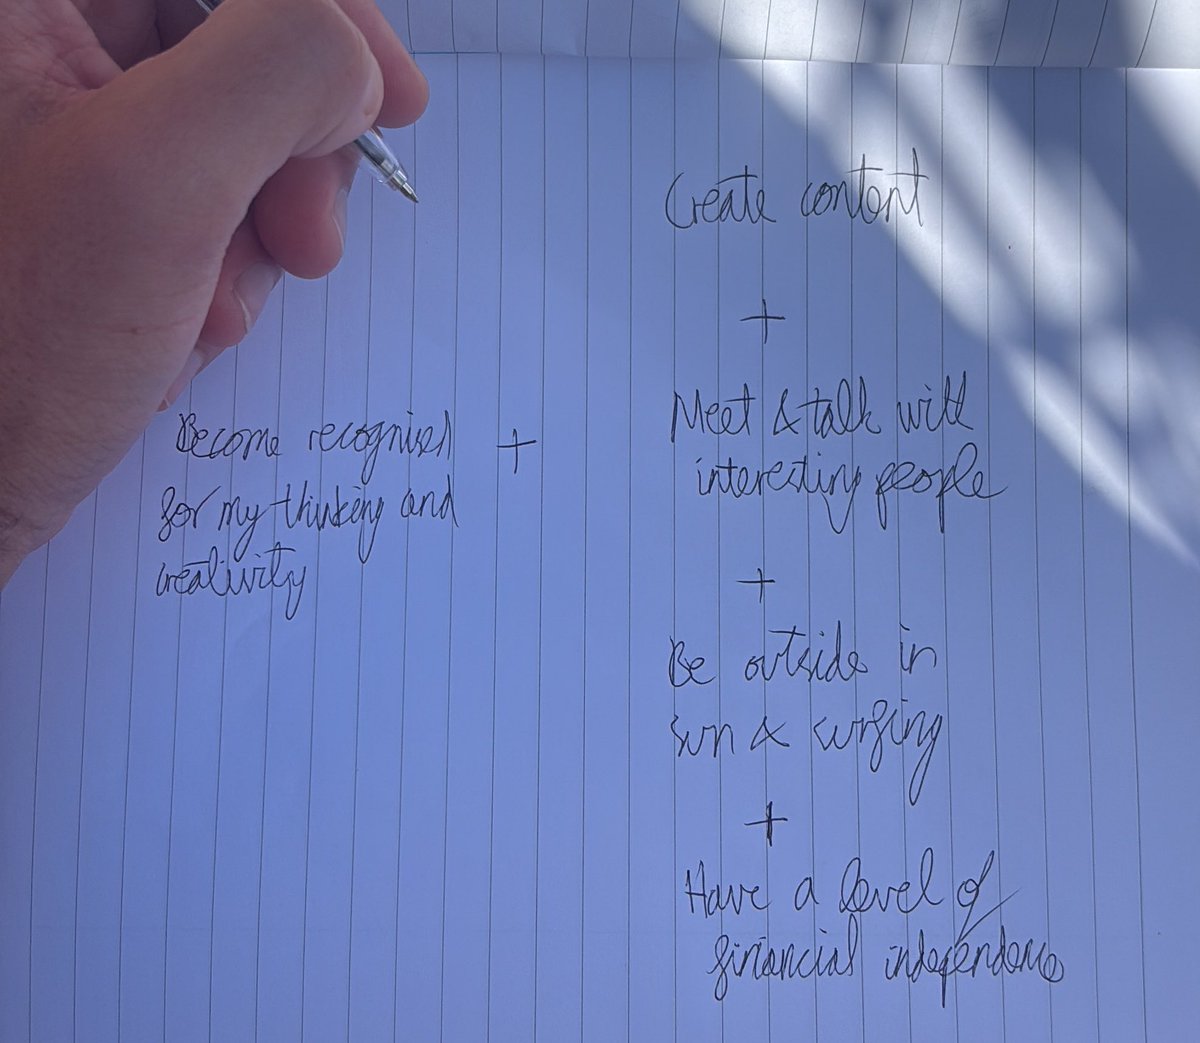 Create content
+
Meet & talk with
interesting people
+
Become recognised
for my thinking and
creativity
+
Be outside in
sun & surfing
+
Have a level of
financial independence